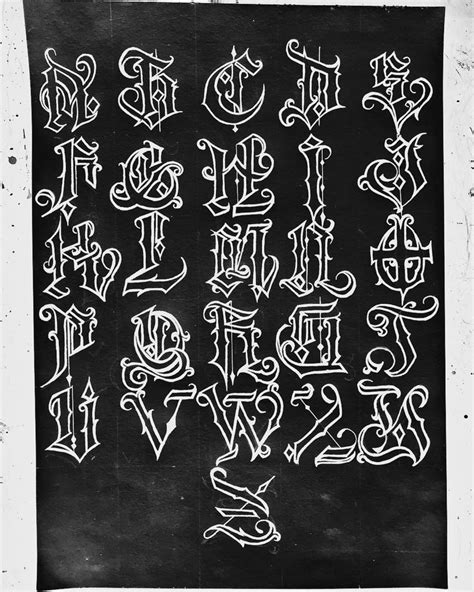 A B C D E
F G H I J
K L M N O
P Q R S T
U V W Z X
Y